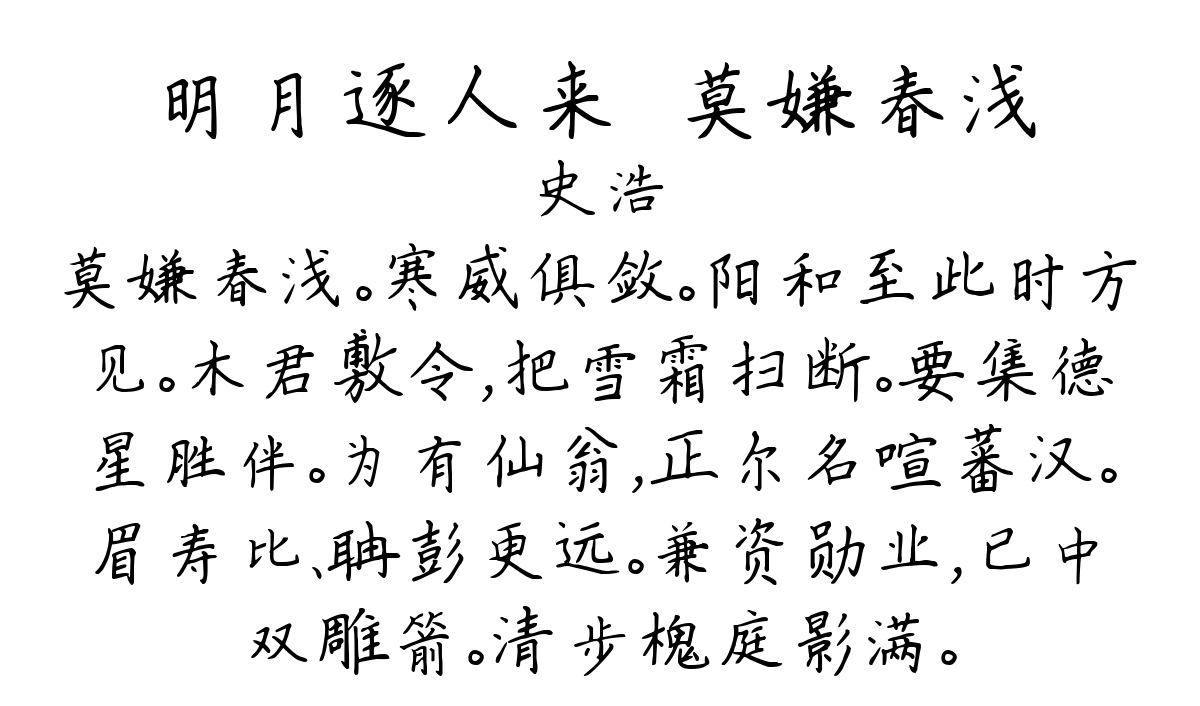 明月逐人来 莫嫌春浅
史浩
莫嫌春浅。寒威俱敛。阳和至此时方
见。木君敷令,把雪霜扫断。要集德
星胜伴。为有仙翁,正尔名喧蕃汉。
眉寿比、聃彭更远。兼资勋业,已中
双雕箭。清步槐庭影满。